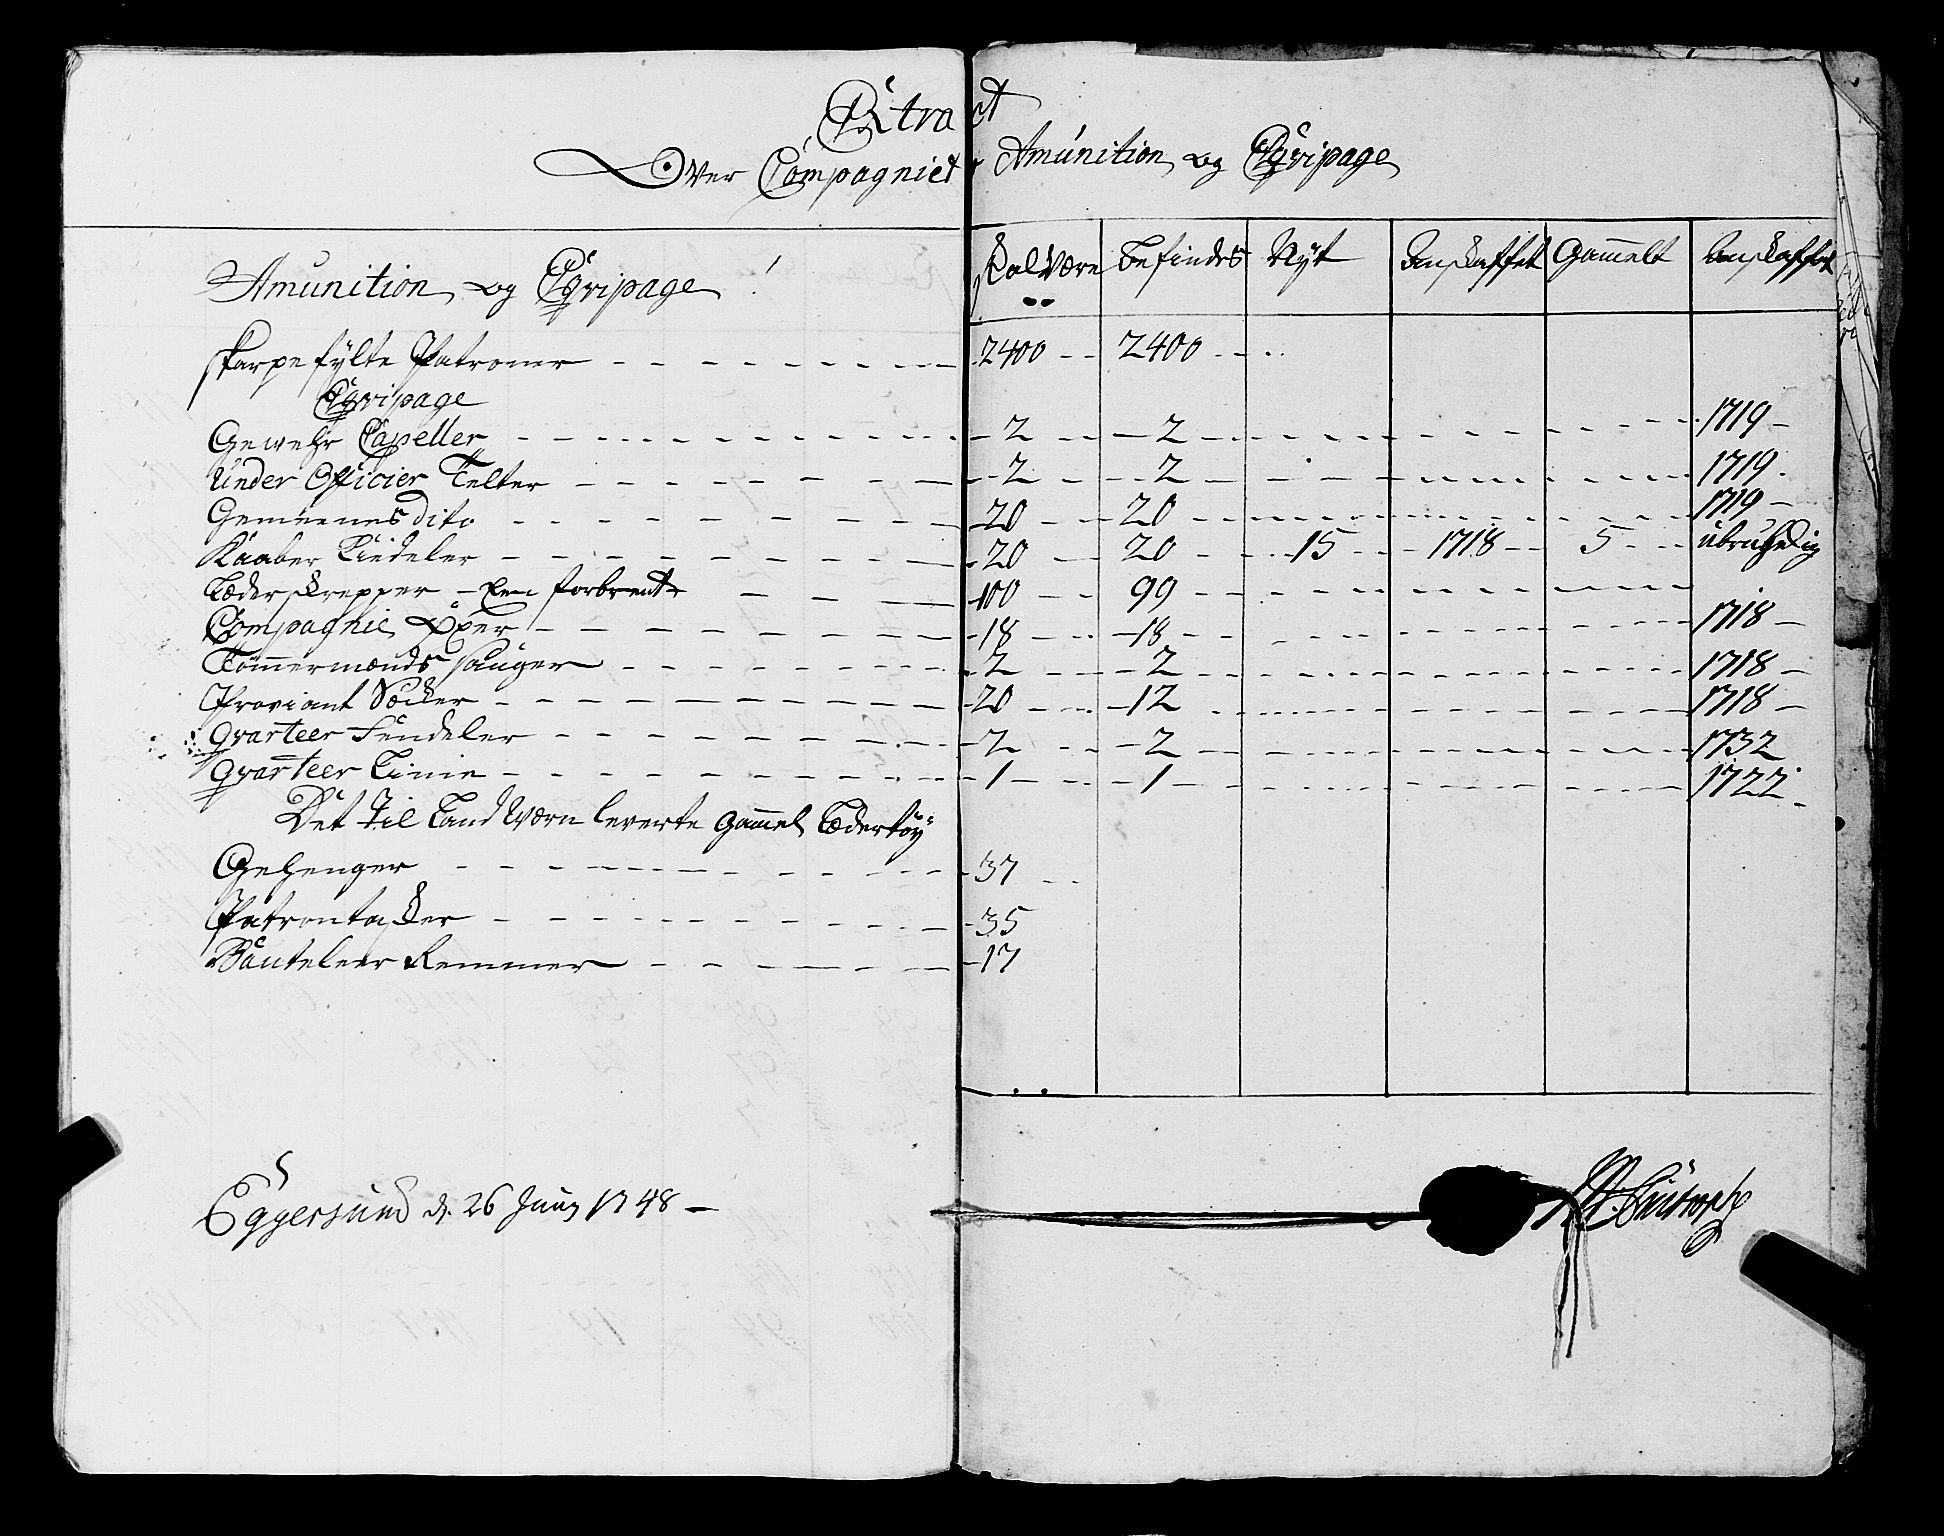 Extract
Over Compagniets Amunition og Eqvipage
Amunition og Eqvipage | skal være | befindes | Nÿt | anskaffet | Gam̄elt | anskaffet
skarpe fÿlte Patroner 2400 2400
Eqvipage
Gewehr Capeller 2 2 1719
Under Officier Telter 2 2 1719
Gemeenes dito 20 20 1719
Kaaber Kiedeler 20 20 15 1718 5 ubrugelig
Læder skrepper - Een forbrent 100 99
Compagnie Øxer 18 18 1718
Tømmermænds sauger 2 2 1718
Proviant Sæcker 20 12 1718
Qvarteer Fendeler 2 2 1732
Qvarteer Linie 1 1 1722
Det Til Land Værn leverte gam̄el Lædertøÿ
Gehenger 37
Patrontasker 35
Banteleer Remmer 17
Eggersund d. 26 Junÿ 1748